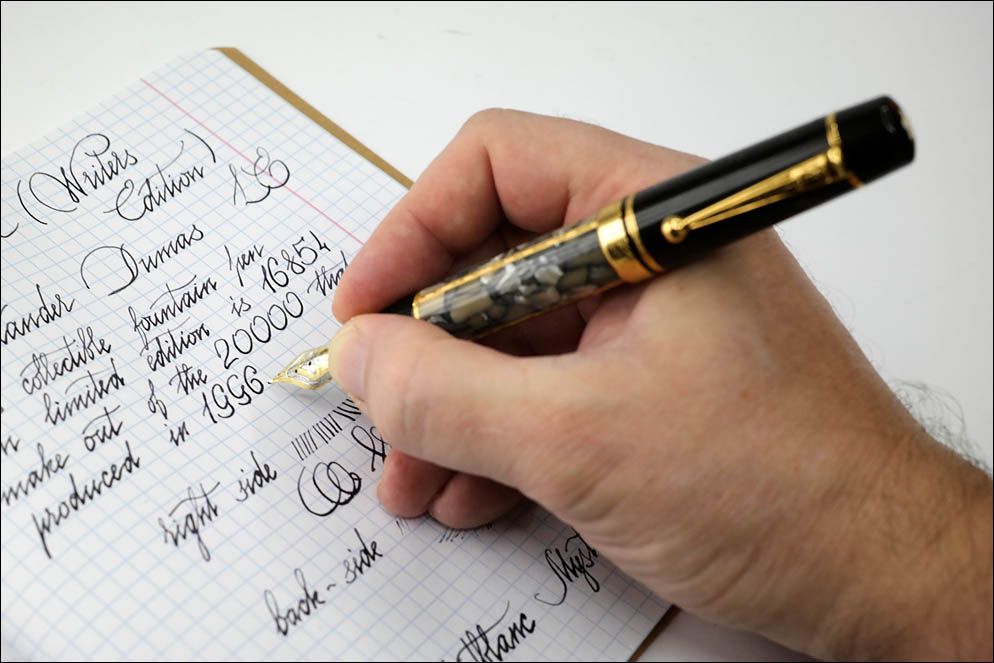 (Writers
Edition) LE
xander Dumas
collectible fountain pen
limited edition is 16854
make out of the 20000 that
produced in 1996.
right side
back-side
Myst
tblanc